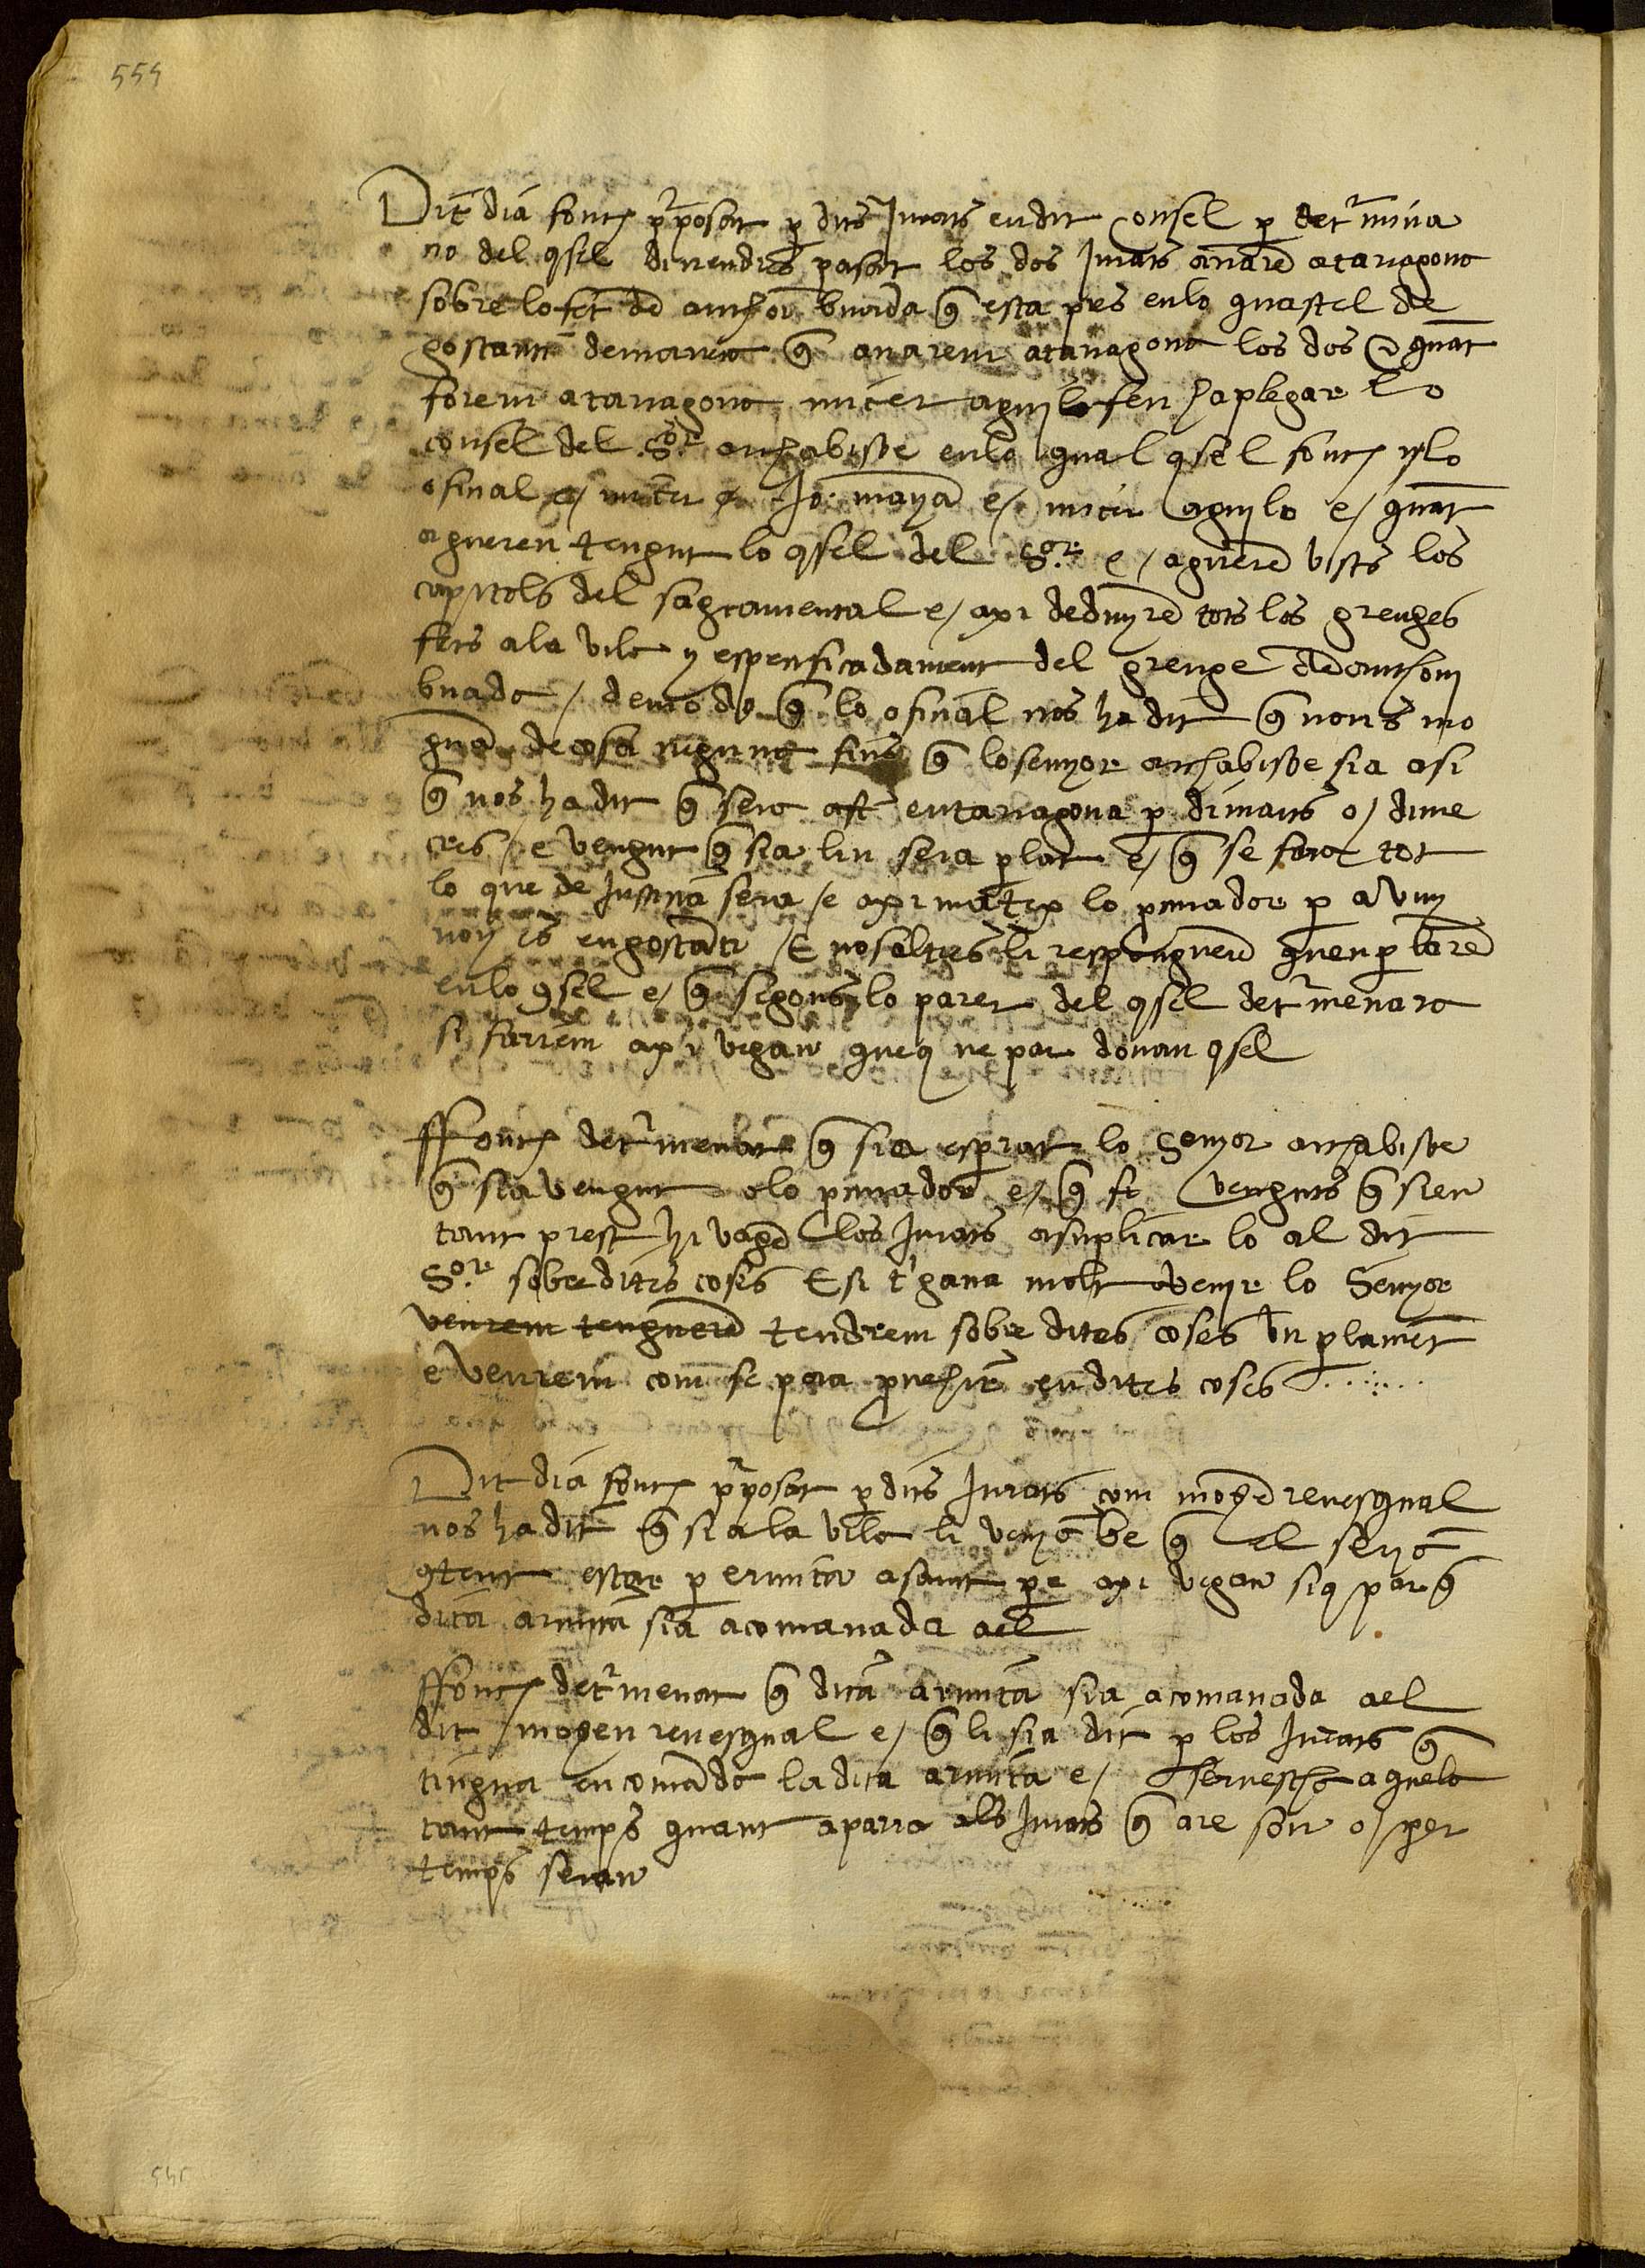 554
Dit dia fonch pposat p dits Jurats en dit Consel p detrmina
cio del qsel divendres pasat los dos Jurats anare a tarragona
sobre lo fet de anthoni buada q esta pres en lo guastel de
gostanti de manera q anarem a tarragona los dos e quat
forem a tarragona micer aguilo feu haplegar lo
consel del Sor archabisbe en lo qual qsel fonch y lo
ofisial e/ micer Jo. maya e/ micer aguilo e/ quat
agueren tengut lo qsel del Sor e/ aguere vists los
capitols del sagramental e/ axi deduyre tots los greuges
fets a la vila y espesificadament del greuge de anthoni
buada / de modo q lo ofisial nos ha dit q nons mo
guem de cosa neguna fins q lo senyor archabisbe sia asi
q nos ha dit q sera asi en tarragona p dimars o/ dime
cres / e vengut q sia lin sera plat e/ q se fara tot
lo que de Justicia sera / e axi matex lo pcurador p avuy
noy es en gostanti / E nosaltres li responguem quen plare
en lo qsel e/ q segons lo parer del qsel detrmenara
si fariem axi vegau queus ne par donan qsel
ffonch detrmenat q sia esperat lo Senyor archabisbe
q sia vengut e lo pcurador e/ q si venguts q sien
tant prest hi vage los Jurats a suplicar lo al dit
Sor sobre dites coses E si trigava molt a venir lo Senyor
venrem tenguere tendrem sobre dites coses un plament
e veurem com se pora pvehir en dites coses
Dit dia fonch pposat p dits Jurats com mosse revesqual
nos ha dit q si a la vila li venia be q el seria
qtent estar p ermita a sant pe axi vegau sius par q
dita armita sia acomanada a el
ffonch detrmenat q dita armita sia acomanada a el
dit mosen revesqual e/ q li sia dit p los Jurats q
tingua en comada la dita armita e/ servescha aquela
tant temps quant a parra als Jurats q are son o/ per
temps seran